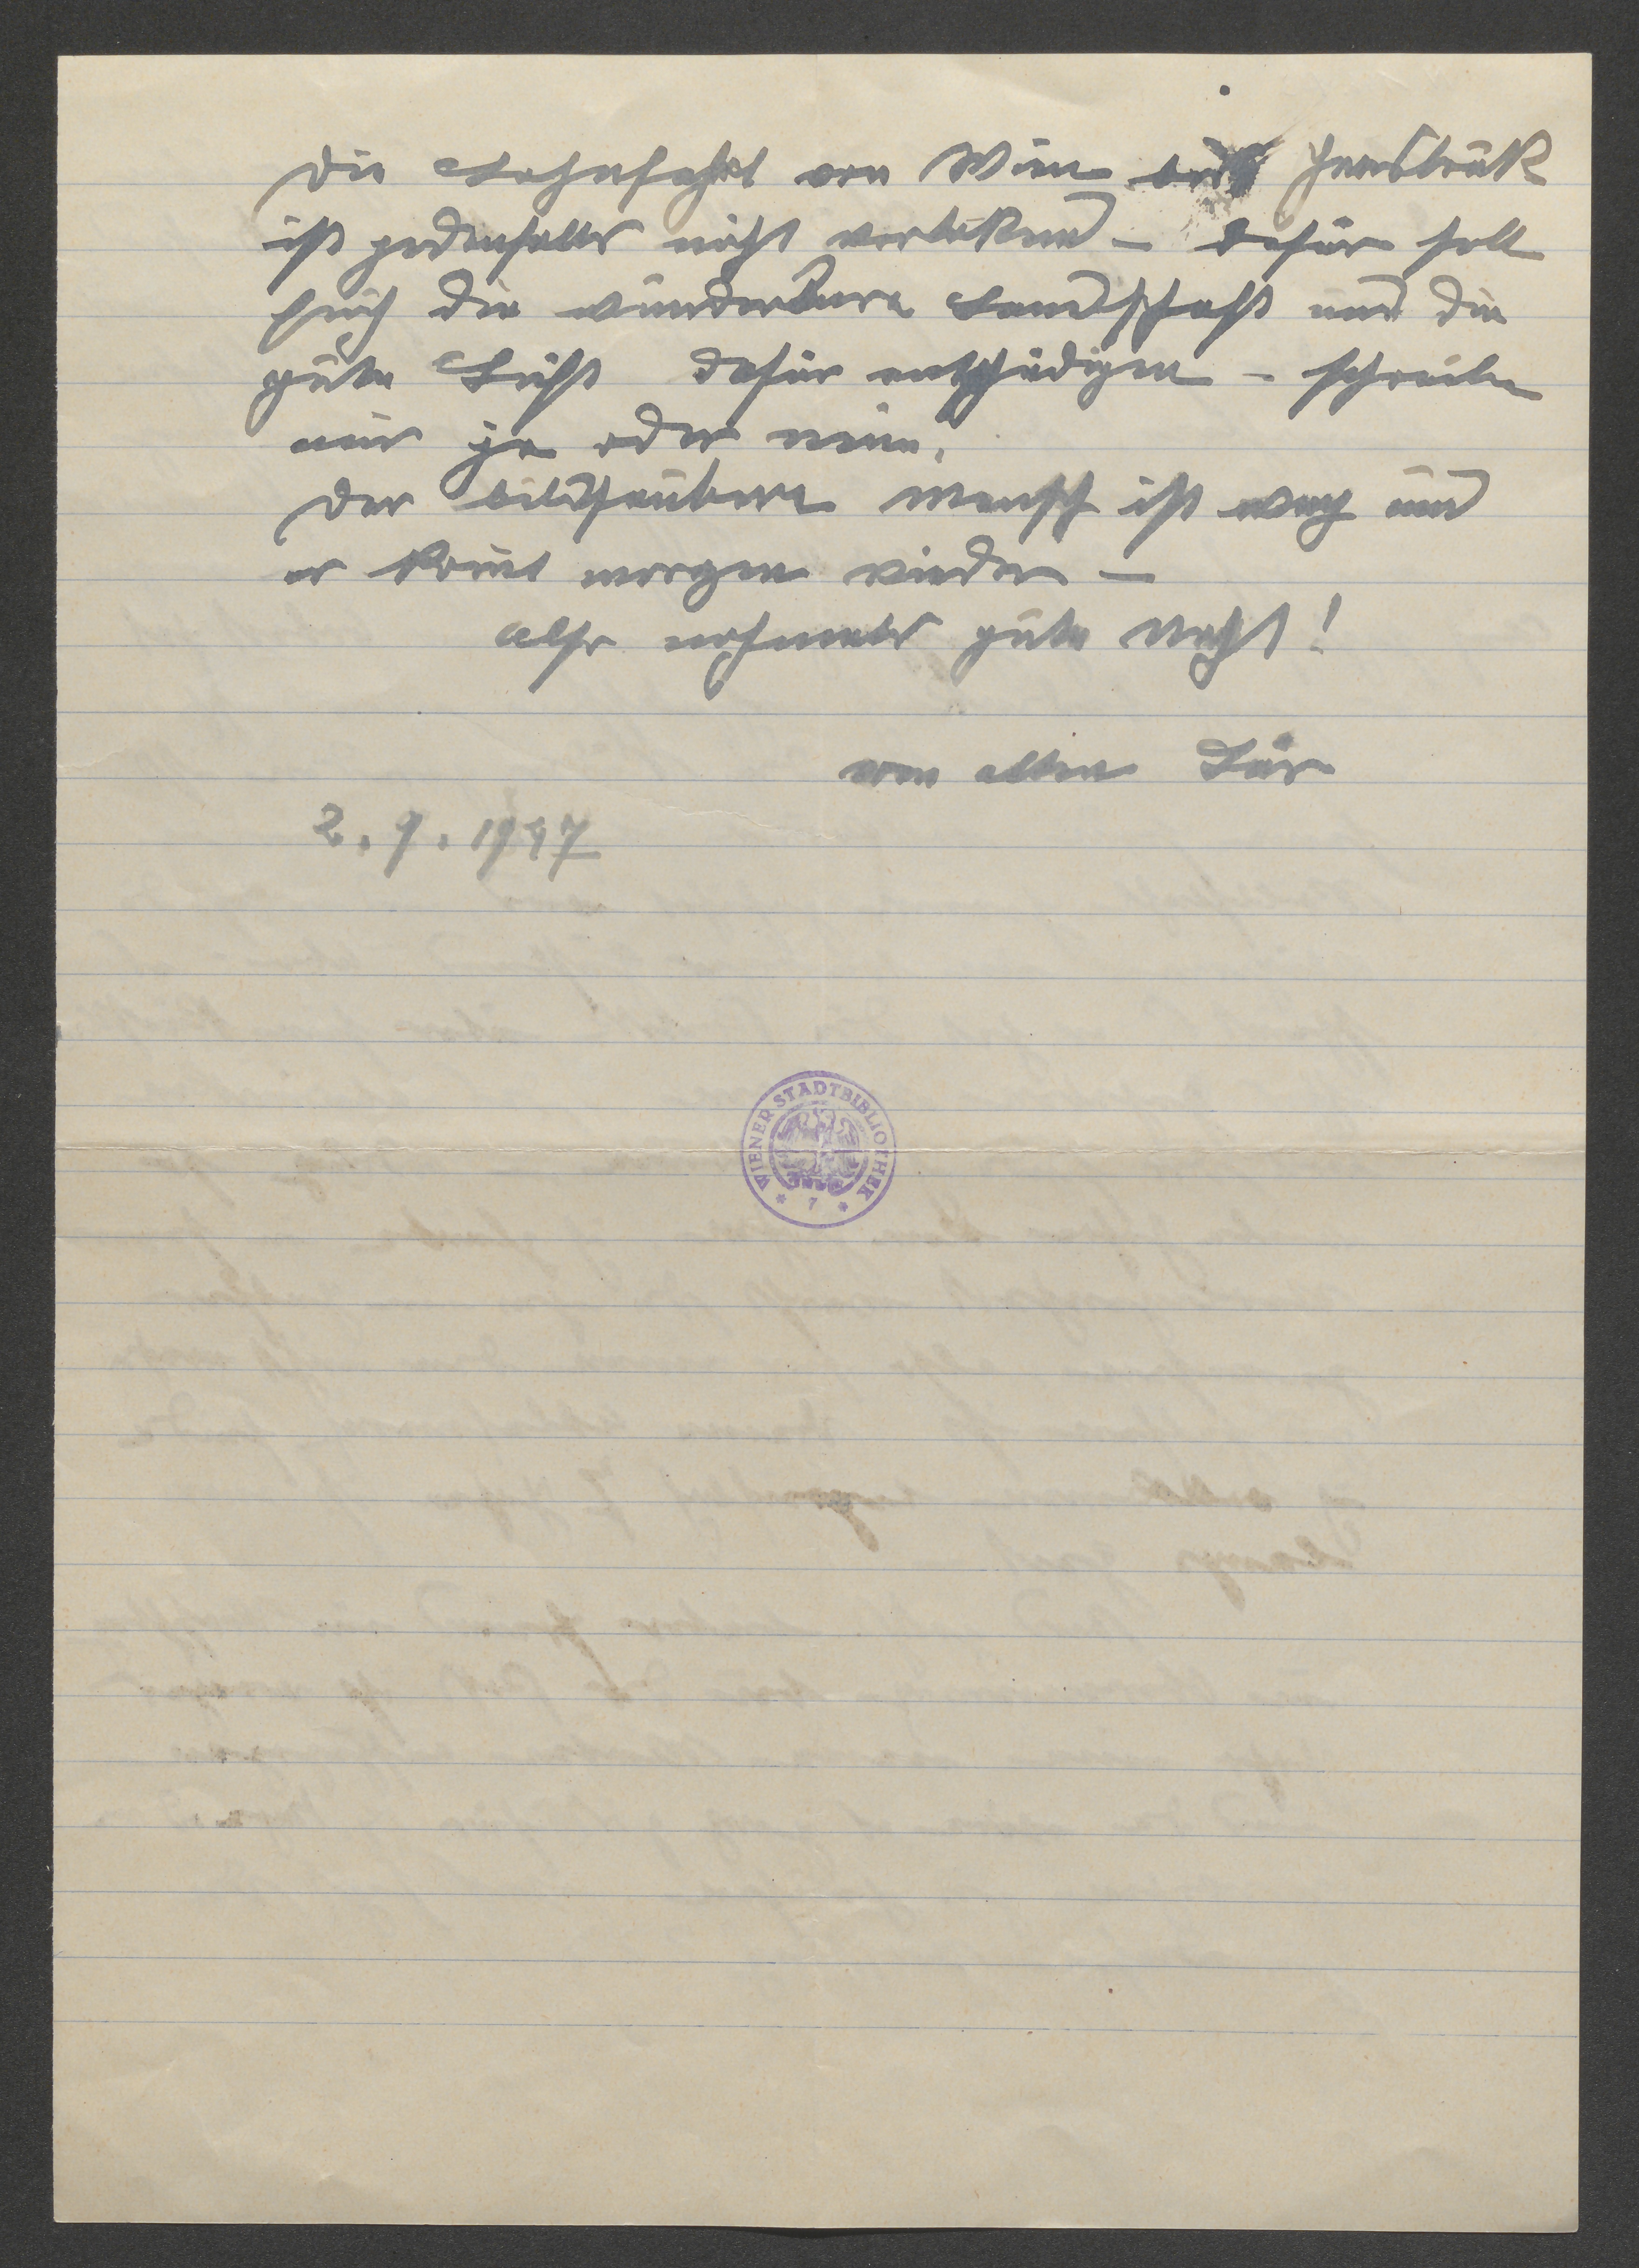 die Bahnfahrt von Wien bis Innsbruk
ist jedenfalls nicht verlokend – dafür soll
Euch die wunderbare Landschaft und die
gute Luft dafür entschädigen – schreibe
nur ja oder nein.
der bildsaubere Mensch ist weg und
er komt morgen wieder –
also nochmals gute Nacht!
vom alten
2.9.1947
WIENER STADTBIBLIOTHEK
* 7 *